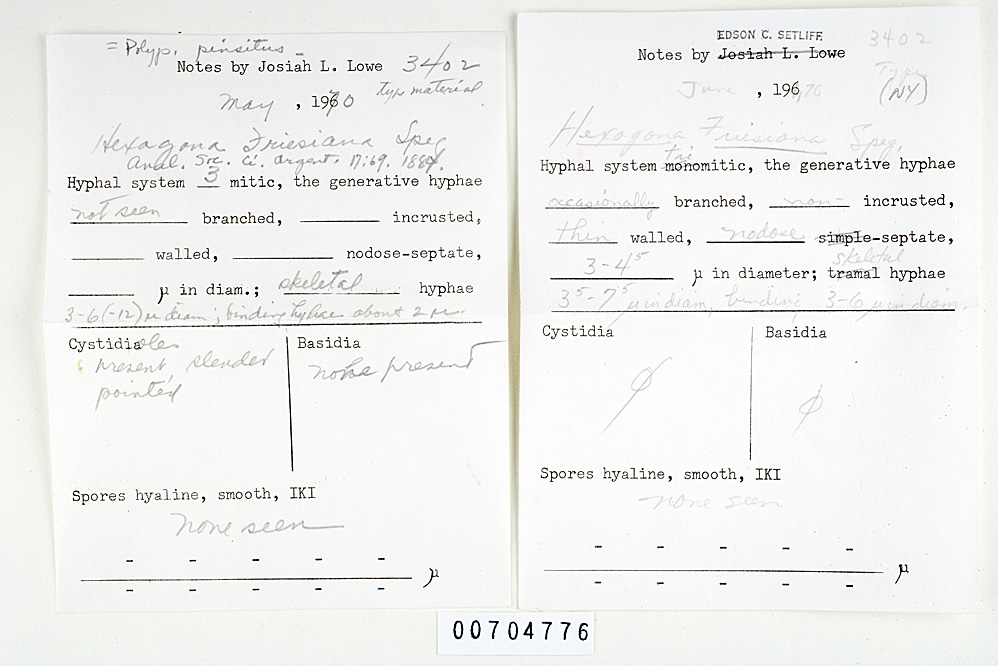 = Polyp. pinsitus -
Notes by Josiah L. Lowe 3402
typ material
May , 1970
Hexagona Friesiana Speg
Anal. Soc. Ci. Argent. 17:69. 1884.
Hyphal system 3 mitic, the generative hyphae
not seen branched, incrusted,
walled, nodose-septate,
µ in diam.; skeletal hyphae
3-6(-12) µ diam; binding hyphae about 2 µ.
Cystidioles Basidia
present, slender none present
pointed
Spores hyaline, smooth, IKI
None seen
- - - - -
µ
- - - - -
EDSON C. SETLIFF 3402
Notes by Josiah L. Lowe
Type
June , 1970 (NY)
Hexagona Friesiana Speg.
Hyphal system trimonomitic, the generative hyphae
occasionally branched, non- incrusted,
thin walled, nodose simple-septate,
skeletal
3-4⁵ µ in diameter; tramal hyphae
3⁵-7⁵ µ in diam, binding 3-6 µ in diam.
Cystidia Basidia
ø ø
Spores hyaline, smooth, IKI
none seen
- - - - -
µ
- - - - -
00704776